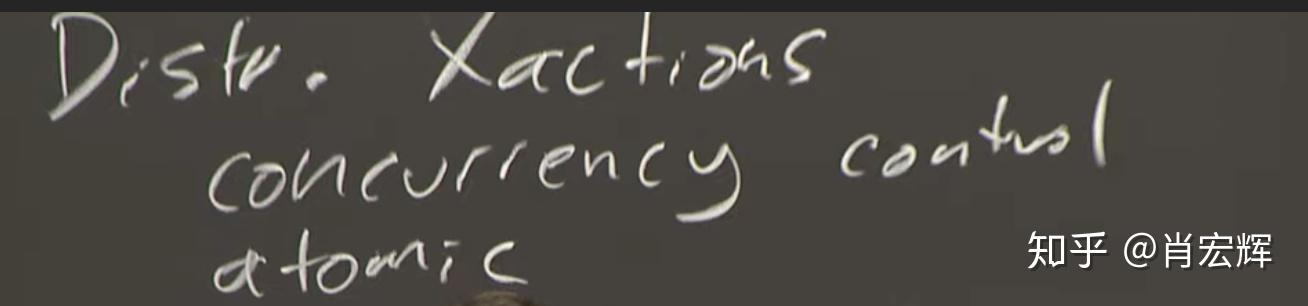 Distr. Xactions
concurrency control
atomic
知乎 @肖宏辉